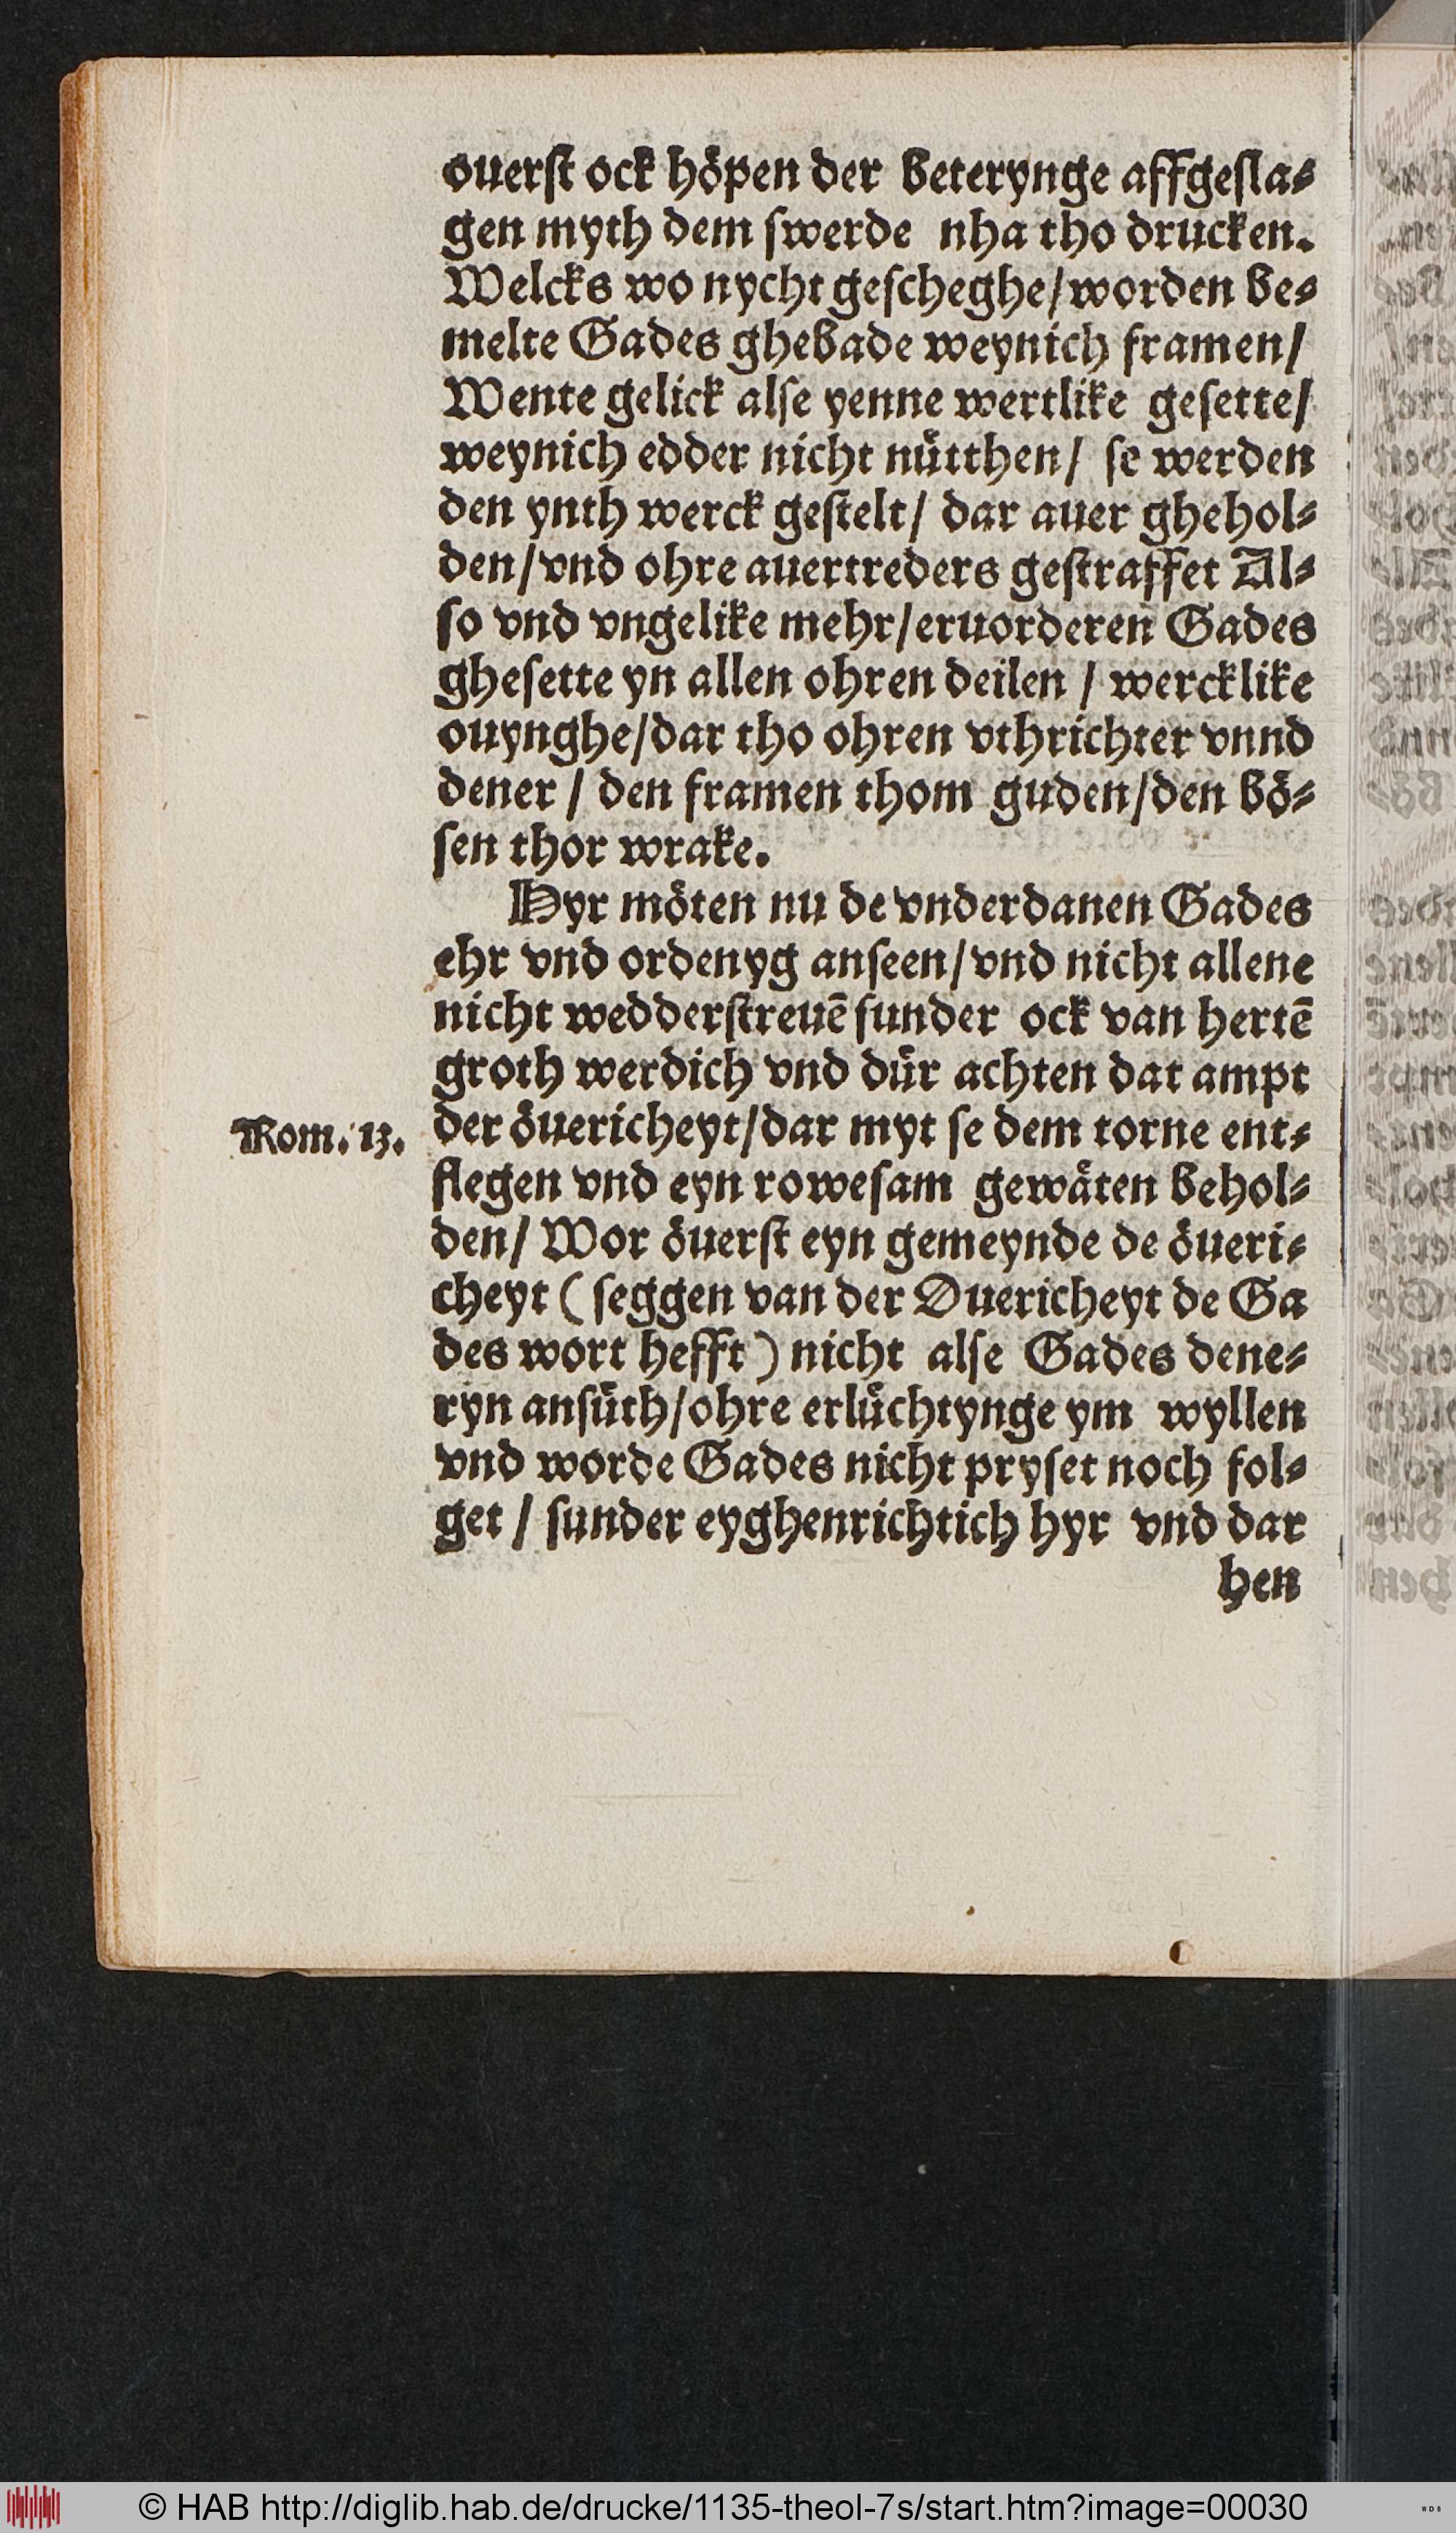 ouerſt ock hoͤpen der beterynge affgeſla⸗
gen myth dem ſwerde nha tho drucken.
Welcks wo nycht geſcheghe/worden be⸗
melte Gades ghebade weynich framen/
Wente gelick alſe yenne wertlike geſette/
weynich edder nicht nuͤtthen/ ſe werden
den ynth werck geſtelt/ dar auer ghehol⸗
den/vnd ohre auertreders geſtraffet Al⸗
ſo vnd vngelike mehr/eruorderen Gades
gheſette yn allen ohren deilen / wercklike
ouynghe/dar tho ohren vthrichter vnnd
dener / den framen thom guden/den boͤ⸗
ſen thor wrake.
Hyr moͤten nu de vnderdanen Gades
ehr vnd ordenyg anſeen/vnd nicht allene
nicht wedderſtreuē ſunder ock van hertē
groth werdich vnd duͤr achten dat ampt
Rom. 13.
der oͤuericheyt/dar myt ſe dem torne ent⸗
flegen vnd eyn roweſam gewaͤten behol⸗
den/ Wor oͤuerſt eyn gemeynde de oͤueri⸗
cheyt ( ſeggen van der Ouericheyt de Ga
des wort hefft ) nicht alſe Gades dene⸗
ryn anſuͤth/ohre erluͤchtynge ym wyllen
vnd worde Gades nicht pryſet noch fol⸗
get / ſunder eyghenrichtich hyr vnd dar
hen
© HAB http://diglib.hab.de/drucke/1135-theol-7s/start.htm?image=00030